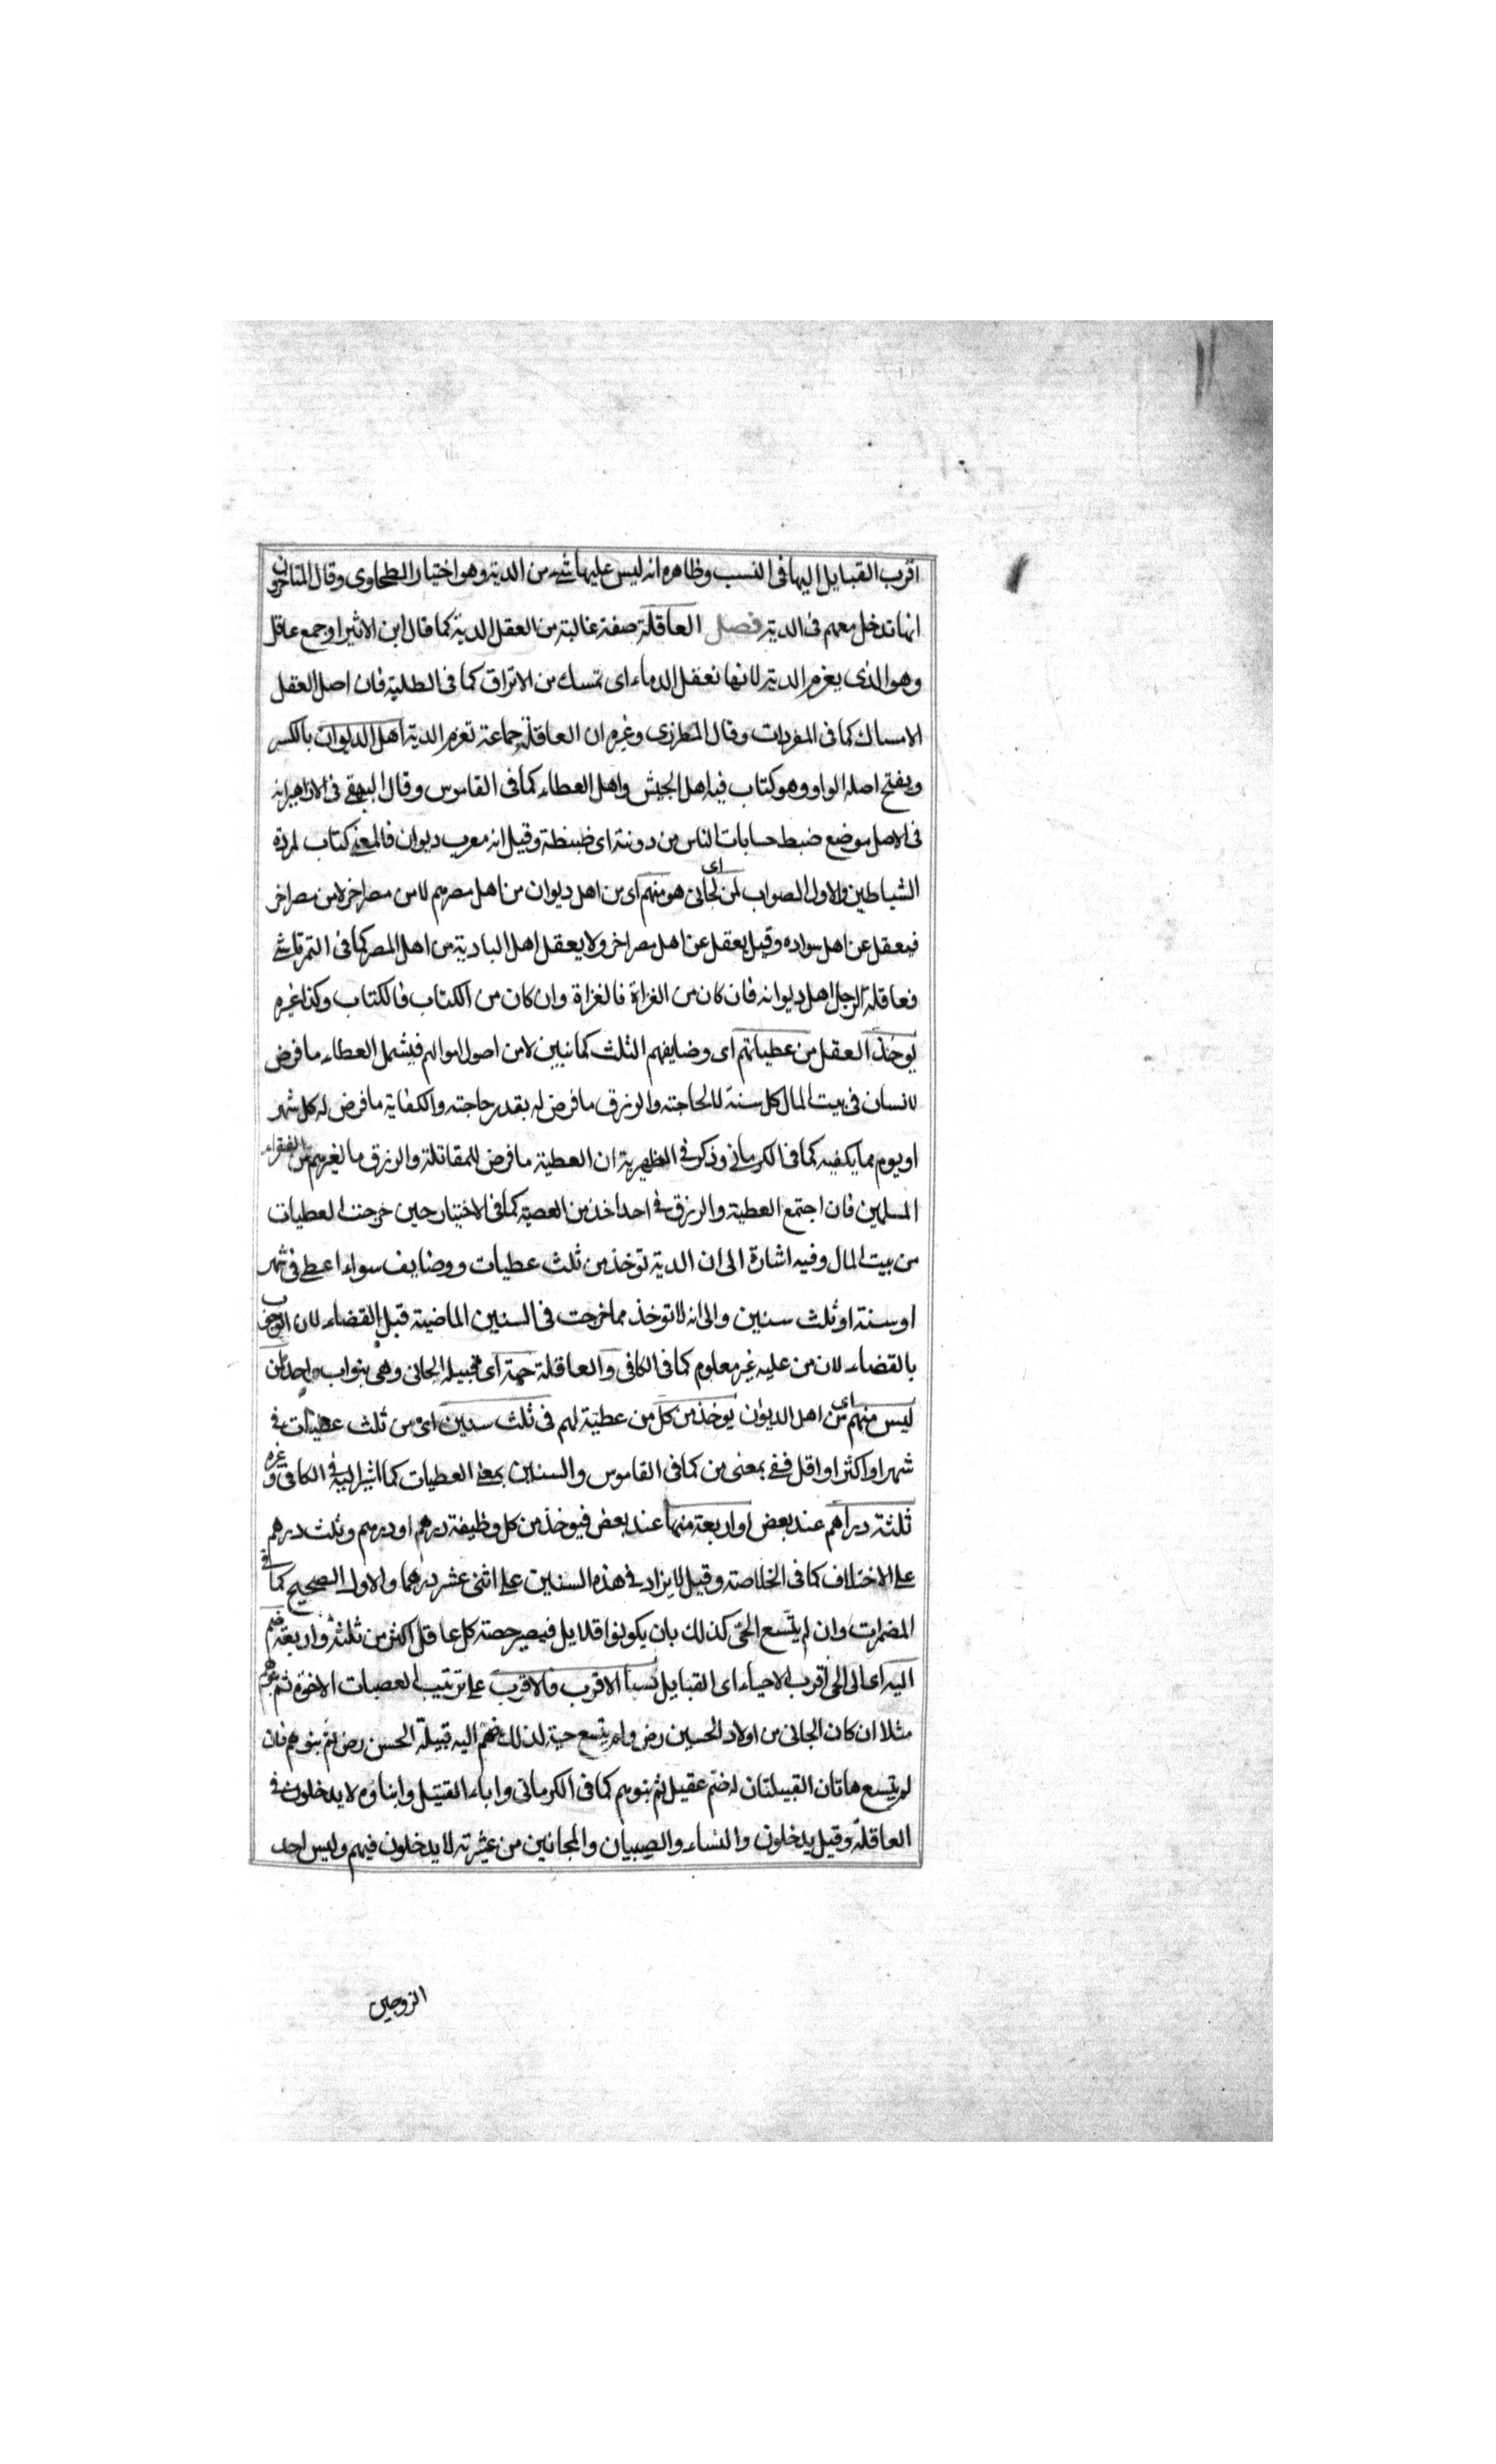 اقرب القبايل اليها فى النسب وظاهره انه ليس عليها شىء من الدية وهو اختيار الطحاوى وقال المتاخرون
انها تدخل معهم فى الدية فصل العاقلة صفة غالبة من العقل الدية كما قال ابن الاثير او جمع عاقل
وهو الذى يغرم الدية لانها تعقل الدماء اى تمسك من الاتراق كما فى الطلبة فان اصل العقل
الامساك كما فى المفردات وقال المطرزى وغيره ان العاقلة جماعة تغرم الدية اهل الديوان بالكسر
ويفتح اصله الواو وهو كتاب فيه اهل الجيش واهل العطاء كما فى القاموس وقال البيهقى فى الازاهير انه
فى الاصل موضع ضبط حسابات الناس من دونته اى ضبطة وقيل انه معرب ديوان فالمعنى كتاب لمردة
الشياطين والاول الصواب لمن اى لجانى هو منهم اى من اهل ديوان من اهل مصرهم لا من مصر اخر لا من مصر اخر
فيعقل عن اهل سواده وقيل يعقل عن اهل مصر اخر ولا يعقل اهل البادية من اهل المصر كما فى التمرتاشى
فعاقلة الرجل اهل ديوانه فان كان من الغزاة فالغزاة وان كان من الكتاب فالكتاب وكذا غيره
يوخذ العقل من عطياتهم اى وضايفهم الثلث كما نبين لا من اصول اموالهم فيشمل العطاء ما فرض
لانسان فى بيت المال كل سنة لا لحاجته والرزق ما فرض له بقدر حاجته والكفاية ما فرض له كل شهر
او يوم مما يكفيه كما فى الكرمانى وذكر فى الظهيرية ان العطية ما فرض للمقاتلة والرزق ما لغيرهم من الفقراء
المسلمين فان اجتمع العطية والرزق فى احد اخذ من العصية كما فى الاختيار حين خرجت العطيات
من بيت المال وفيه اشارة الى ان الدية توخذ من ثلث عطيات ووضايف سواء اعطى فى شهر
او سنة او ثلث سنين والى انه لا توخذ مما خرجت فى السنين الماضية قبل القضاء لان الوجوب
بالقضاء لان من عليه غير معلوم كما فى الكافى والعاقلة حية اى قبيلة الجانى وهى بنو اب واحد لمن
ليس منهم اى من اهل الديوان يوخذ من كل من عطية لهم فى ثلث سنين اى من ثلث عطيات فى
شهر او اكثر او اقل ففى بمعنى من كما فى القاموس والسنين بمعنى العطيات كما اشير اليه فى الكافى وغيره
ثلثة دراهم عند بعض او اربعة منها عند بعض فيوخذ من كل وظيفة درهم او درهم وثلث درهم
على الاختلاف كما فى الخلاصة وقيل لا يزاد فى هذه السنين على اثنى عشر درهما والاول الصحيح كما فى
المضمرات وان لم يتسع الحى كذلك بان يكونوا قلايل فيصير حصة كل عاقل اكثر من ثلثة او اربعة ضم
اليه اى الى الحى اقرب الاحياء اى القبايل نسبا الاقرب فالاقرب على ترتيب العصبات الاخوة ثم بنوهم
مثلا ان كان الجانى من اولاد الحسين رض ولم يتسع حية لذلك ضم اليه قبيلة الحسن رض ثم بنوهم فان
لم يتسع هاتان القبيلتان له ضم عقيل ثم بنوهم كما فى الكرمانى واباء القتيل وابناؤه لا يدخلون فى
العاقلة وقيل يدخلون والنساء والصبيان والمجانين من عشيرته لا يدخلون فيهم وليس احد
الزوجين